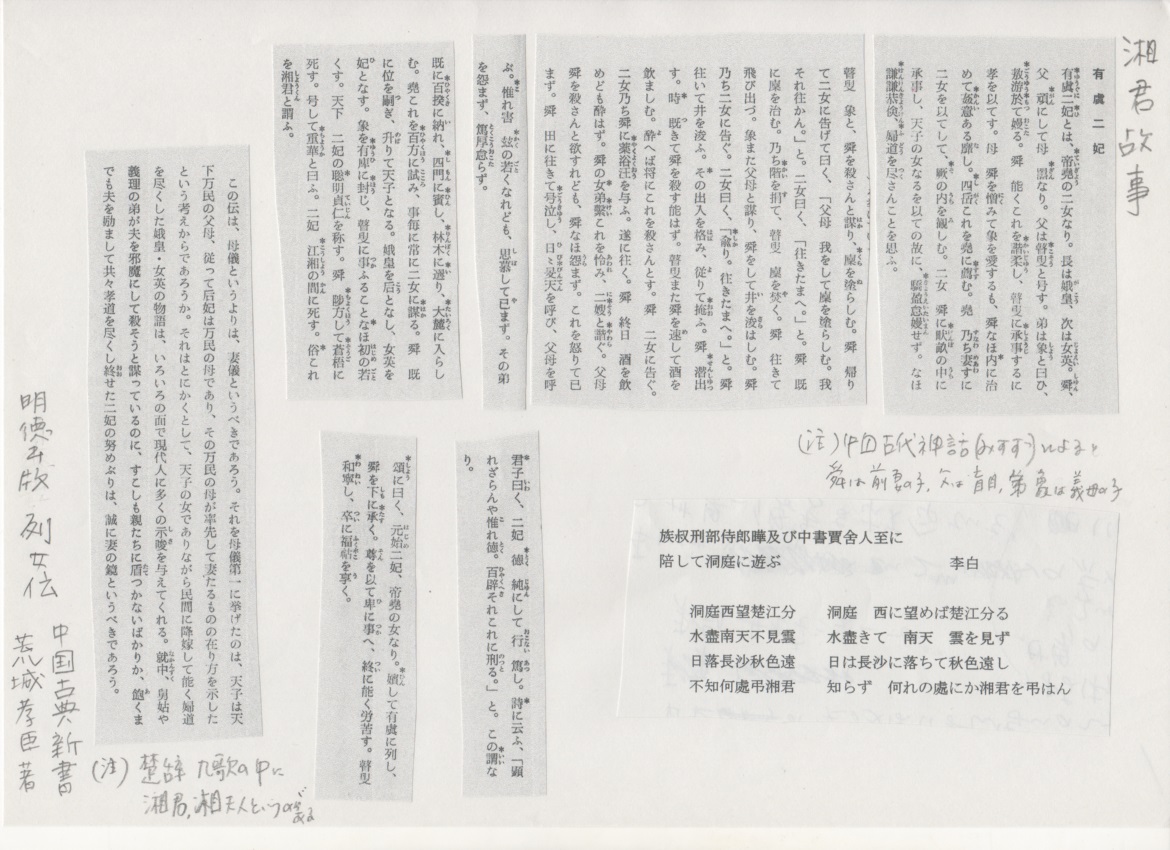 湘君故事
有虞二妃
有虞二妃とは、帝堯の二女なり。長は娥皇、次は女英。舜、
父 頑にして母 嚚なり。父は瞽叟と号す。弟は象と曰ひ、
敖游於て嫚る。舜 能くこれを諧柔し、瞽叟に承事するに
孝を以てす。母 舜を憎みて象を愛するも、舜なほ内に治
めて姦意ある靡し。四岳これを堯に薦む。堯 乃ち妻すに
二女を以てして、厥の内を観しむ。二女 舜に畎畝の中に
承事し、天子の女なるを以ての故に、驕盈怠嫚せず。なほ
謙謙恭倹、婦道を尽さんことを思ふ。
瞽叟 象と、舜を殺さんと謀り、廩を塗らしむ。舜 帰り
て二女に告げて曰く、「父母 我をして廩を塗らしむ。我
それ往かん。」と。二女曰く、「往きたまへ。」と。舜 既
に廩を治む。乃ち階を捐て、瞽叟 廩を焚く。舜 往きて
飛び出づ。象また父母と謀り、舜をして井を浚はしむ。舜
乃ち二女に告ぐ。二女曰く、「兪り。往きたまへ。」と。舜
往いて井を浚ふ。その出入を格み、従りて掩ふ。舜 潜出
す。時 既きて舜を殺す能はず。瞽叟また舜を速して酒を
飲ましむ。酔へば将にこれを殺さんとす。舜 二女に告ぐ。
二女乃ち舜に薬浴汪を与ふ。遂に往く。舜 終日 酒を飲
めども酔はず。舜の女弟繫これを怜み、二嫂と諧ぐ。父母
舜を殺さんと欲すれども、舜なほ怨まず。これを怒りて已
まず。舜 田に往きて号泣し、日〻旻天を呼び、父母を呼
ぶ。惟れ害 玆の若くなれども、思慕して已まず。その弟
を怨まず、篤厚怠らず。
既に百揆に納れ、四門に賓し、林木に選り、大麓に入らし
む。堯これを百方に試み、事毎に常に二女に謀る。舜 既
に位を嗣ぎ、升りて天子となる。娥皇を后となし、女英を
妃となす。象を有庳に封じ、瞽叟に事ふることなほ初の若
くす。天下 二妃の聡明貞仁を称す。舜 陟方して蒼梧に
死す。号して重華と曰ふ。二妃 江湘の間に死す。俗これ
を湘君と謂ふ。
(注)中国古代神話(みすず)によると
舜は前妻の子、父は盲目、弟象は義母の子
君子曰く、二妃 徳 純にして 行 篤し。詩に云ふ、「顕
れざらんや惟れ徳。百辟それこれに刑る。」と。この謂な
り。
頌に曰く、元始二妃、帝堯の女なり。嬪して有虞に列し、
舜を下に承く。尊を以て卑に事へ、終に能く労苦す。瞽叟
和寧し、卒に福祜を享く。
族叔刑部侍郎曄及び中書賈舎人至に
陪して洞庭に遊ぶ 李白
洞庭西望楚江分 洞庭 西に望めば楚江分る
水盡南天不見雲 水盡きて 南天 雲を見ず
日落長沙秋色遠 日は長沙に落ちて秋色遠し
不知何處弔湘君 知らず 何れの處にか湘君を弔はん
この伝は、母儀というよりは、妻儀というべきであろう。それを母儀第一に挙げたのは、天子は天
下万民の父母、従って后妃は万民の母であり、その万民の母が率先して妻たるものの在り方を示した
という考えからであろうか。それはとにかくとして、天子の女でありながら民間に降嫁して能く婦道
を尽くした娥皇・女英の物語は、いろいろの面で現代人に多くの示唆を与えてくれる。就中、舅姑や
義理の弟が夫を邪魔にして殺そうと謀っているのに、すこしも親たちに盾つかないばかりか、飽くま
でも夫を励まして共々孝道を尽くし終せた二妃の努めぶりは、誠に妻の鏡というべきであろう。
(注)楚辞 九歌の中に
湘君、湘夫人というのがある
明徳出版 列女伝
中国古典新書
荒城孝臣著